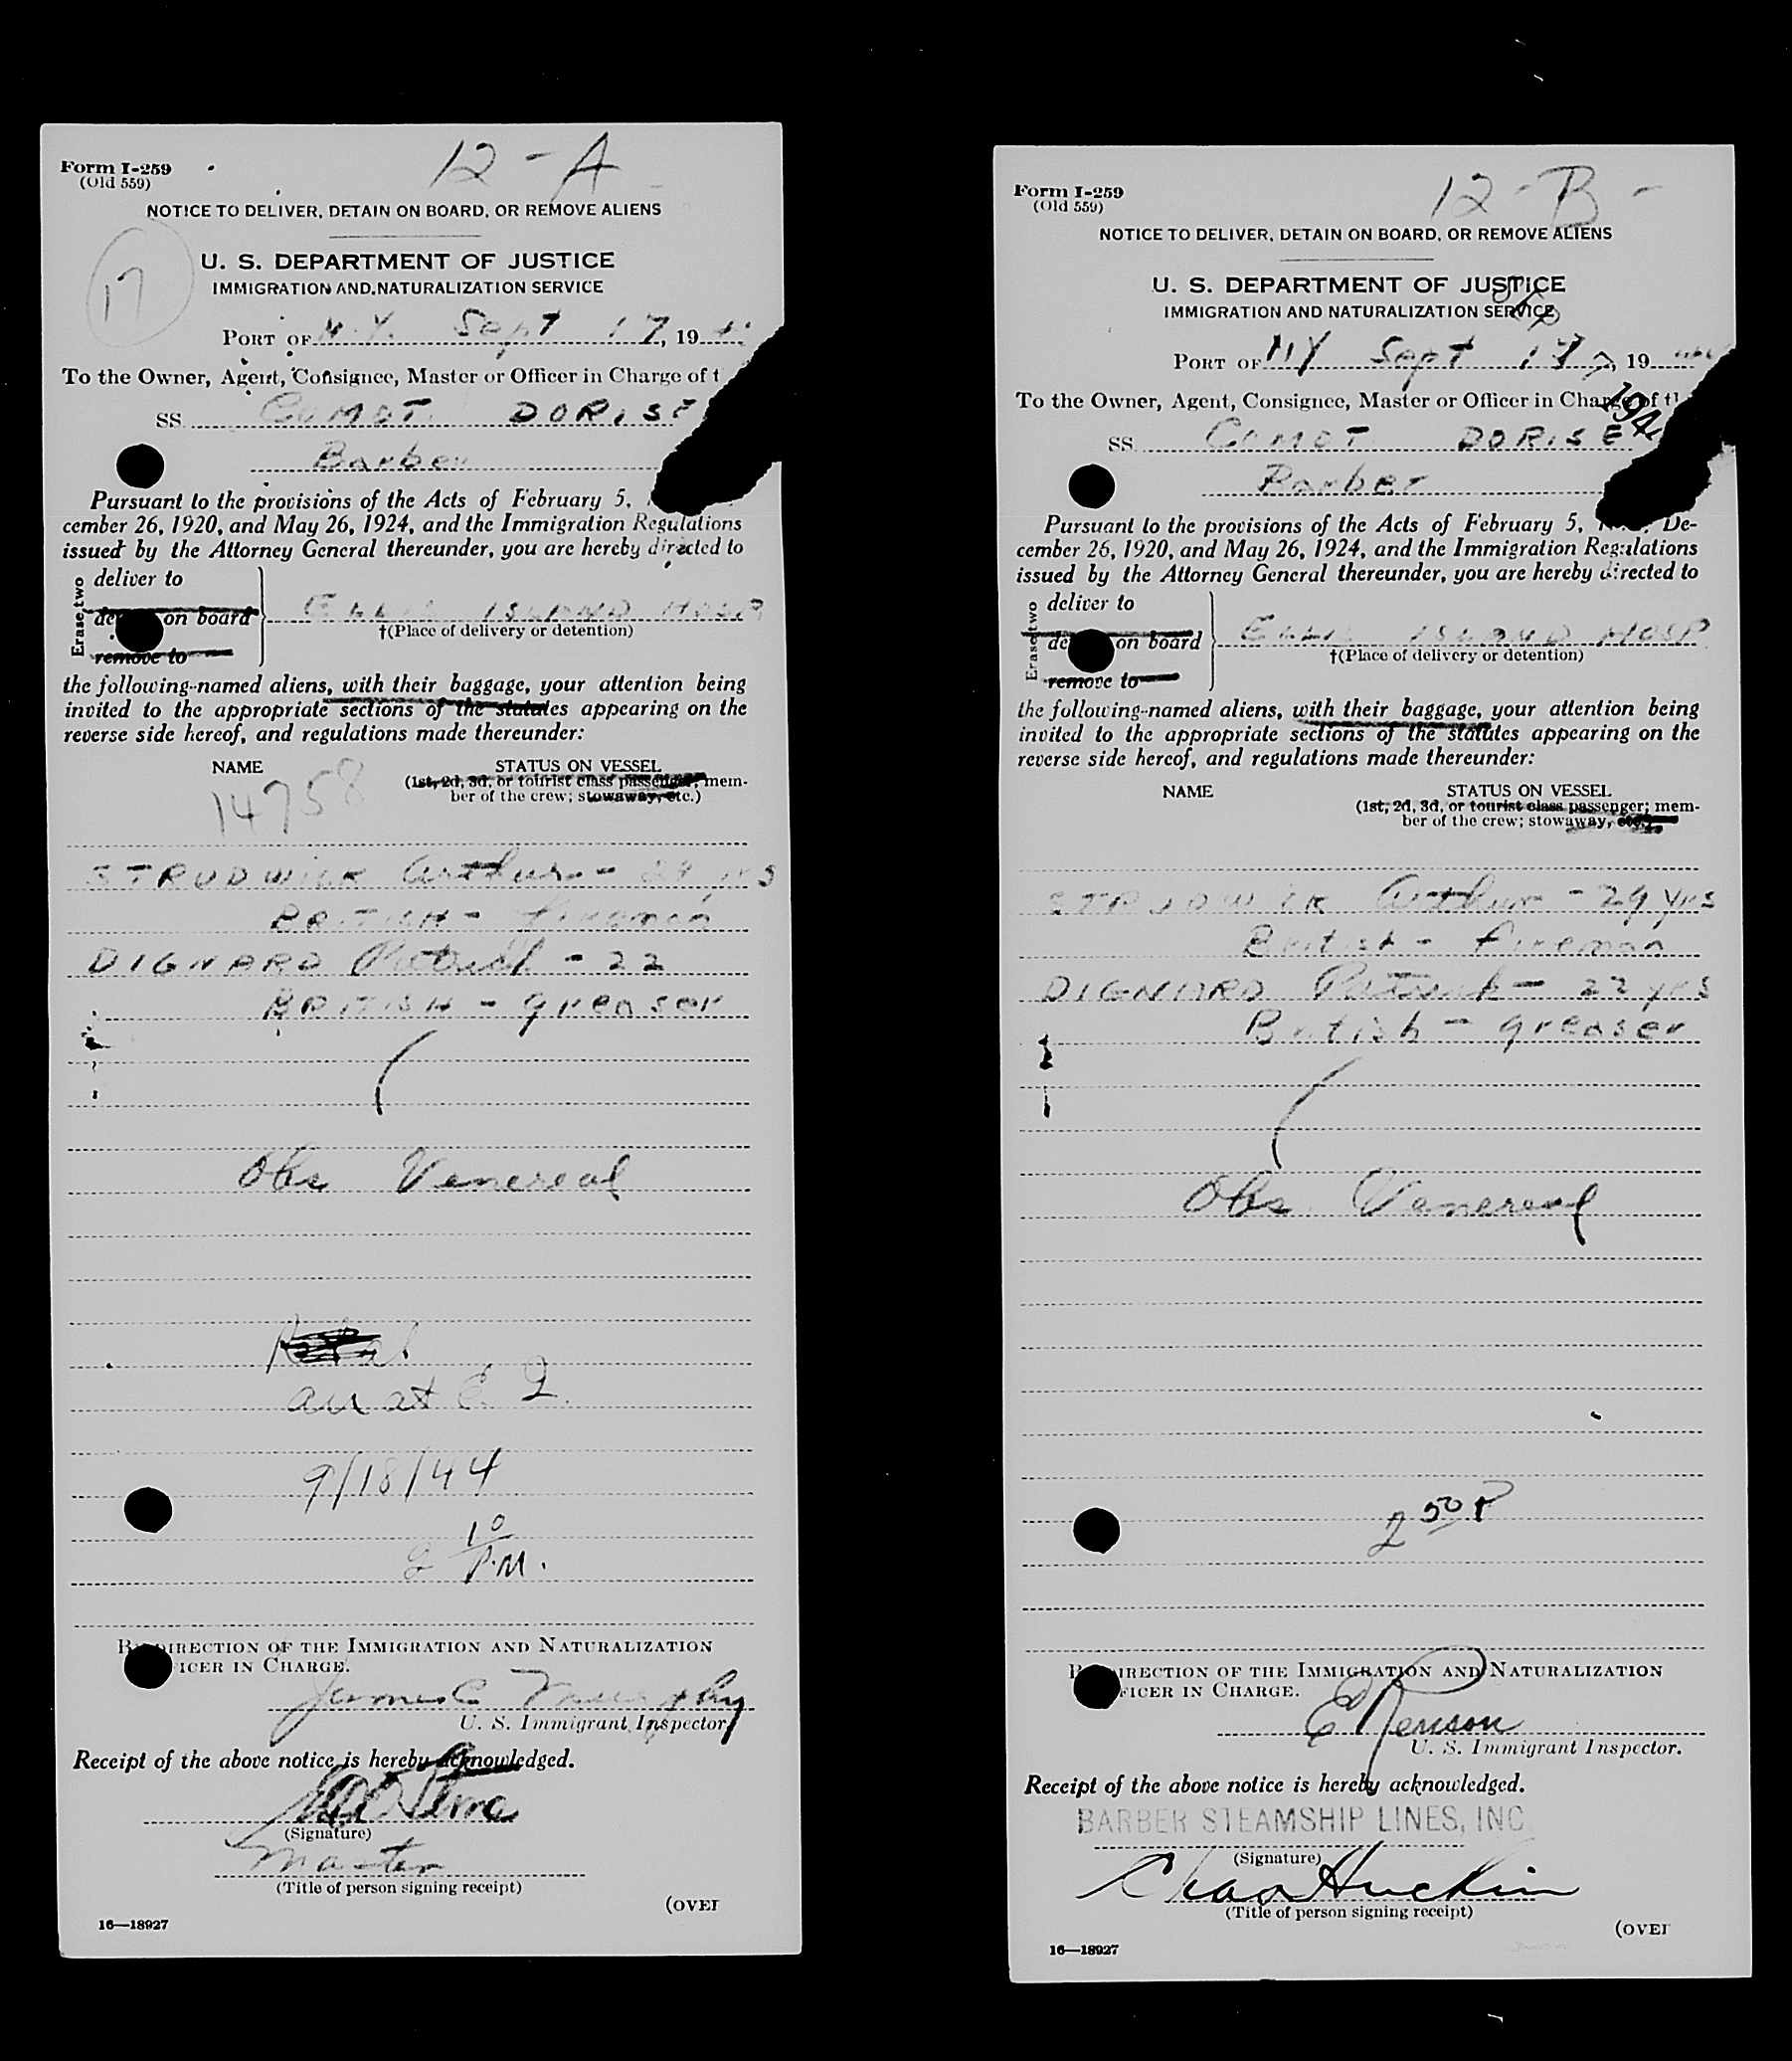 Form I-259
(Old 559)
12-A
NOTICE TO DELIVER, DETAIN ON BOARD, OR REMOVE ALIENS
17
U. S. DEPARTMENT OF JUSTICE
IMMIGRATION AND NATURALIZATION SERVICE
PORT OF N.Y. Sept 17, 19
To the Owner, Agent, Consignee, Master or Officer in Charge of t
SS. COMDT. DORISE
Barber
Pursuant to the provisions of the Acts of February 5,
cember 26, 1920, and May 26, 1924, and the Immigration Regulations
issued by the Attorney General thereunder, you are hereby directed to
Erase two
deliver to
de on board
remove to
ELLIS ISLAND HOSP
†(Place of delivery or detention)
the following-named aliens, with their baggage, your attention being
invited to the appropriate sections of the statutes appearing on the
reverse side hereof, and regulations made thereunder:
NAME STATUS ON VESSEL
(1st, 2d, 3d, or tourist class passenger; mem-
ber of the crew; stowaway, etc.)
14758
STRUDWICK Arthur - 29 yrs
BRITISH - fireman
DIGNARD Patrick - 22
BRITISH - greaser
Obs Venereal
arr at E. I.
9/18/44
2 10 P.M.
B DIRECTION OF THE IMMIGRATION AND NATURALIZATION
ICER IN CHARGE.
James C Murphy
U. S. Immigrant Inspector
Receipt of the above notice is hereby acknowledged.
(Signature)
Master
(Title of person signing receipt)
(OVER
16—18927
Form I-259
(Old 559)
12-B-
NOTICE TO DELIVER, DETAIN ON BOARD, OR REMOVE ALIENS
U. S. DEPARTMENT OF JUSTICE
IMMIGRATION AND NATURALIZATION SERVICE
PORT OF NY Sept 17, 19
To the Owner, Agent, Consignee, Master or Officer in Charge of th
SS. COMDT DORISE
Barber
Pursuant to the provisions of the Acts of February 5, De-
cember 26, 1920, and May 26, 1924, and the Immigration Regulations
issued by the Attorney General thereunder, you are hereby directed to
Erase two
deliver to
de on board
remove to
ELLIS ISLAND HOSP
†(Place of delivery or detention)
the following-named aliens, with their baggage, your attention being
invited to the appropriate sections of the statutes appearing on the
reverse side hereof, and regulations made thereunder:
NAME STATUS ON VESSEL
(1st, 2d, 3d, or tourist class passenger; mem-
ber of the crew; stowaway, etc.)
STRUDWICK Arthur - 29 yrs
British - fireman
DIGNARD Patrick - 22 yrs
British - greaser
Obs Venereal
2 50 P
B DIRECTION OF THE IMMIGRATION AND NATURALIZATION
FICER IN CHARGE.
U. S. Immigrant Inspector.
Receipt of the above notice is hereby acknowledged.
BARBER STEAMSHIP LINES, INC
(Signature)
(Title of person signing receipt)
(OVER
16—18927